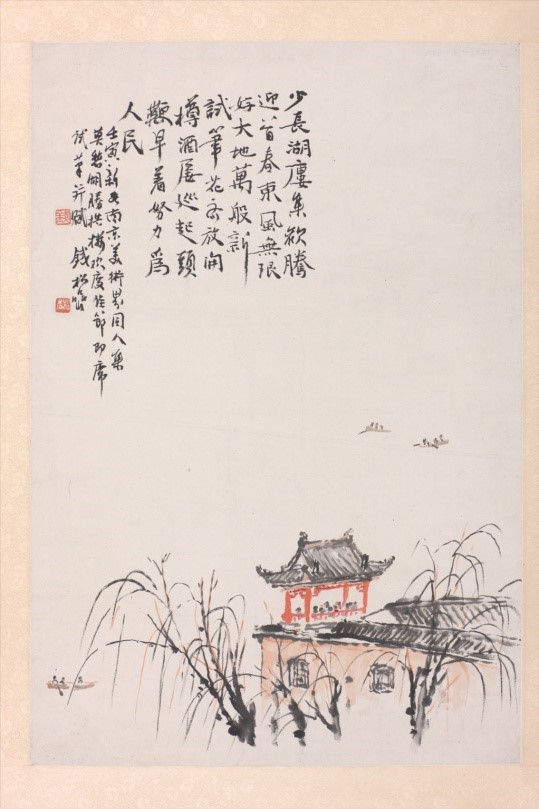 少長湖廔集歡騰
迎首春東風無限
好大地萬般新
試筆花齐放開
樽酒屢巡起頭
鞭早着努力爲
人民
壬寅新春南京美術界同人集
莫愁湖勝棋樓欢度佳節即席
試筆并賦 錢松嵒